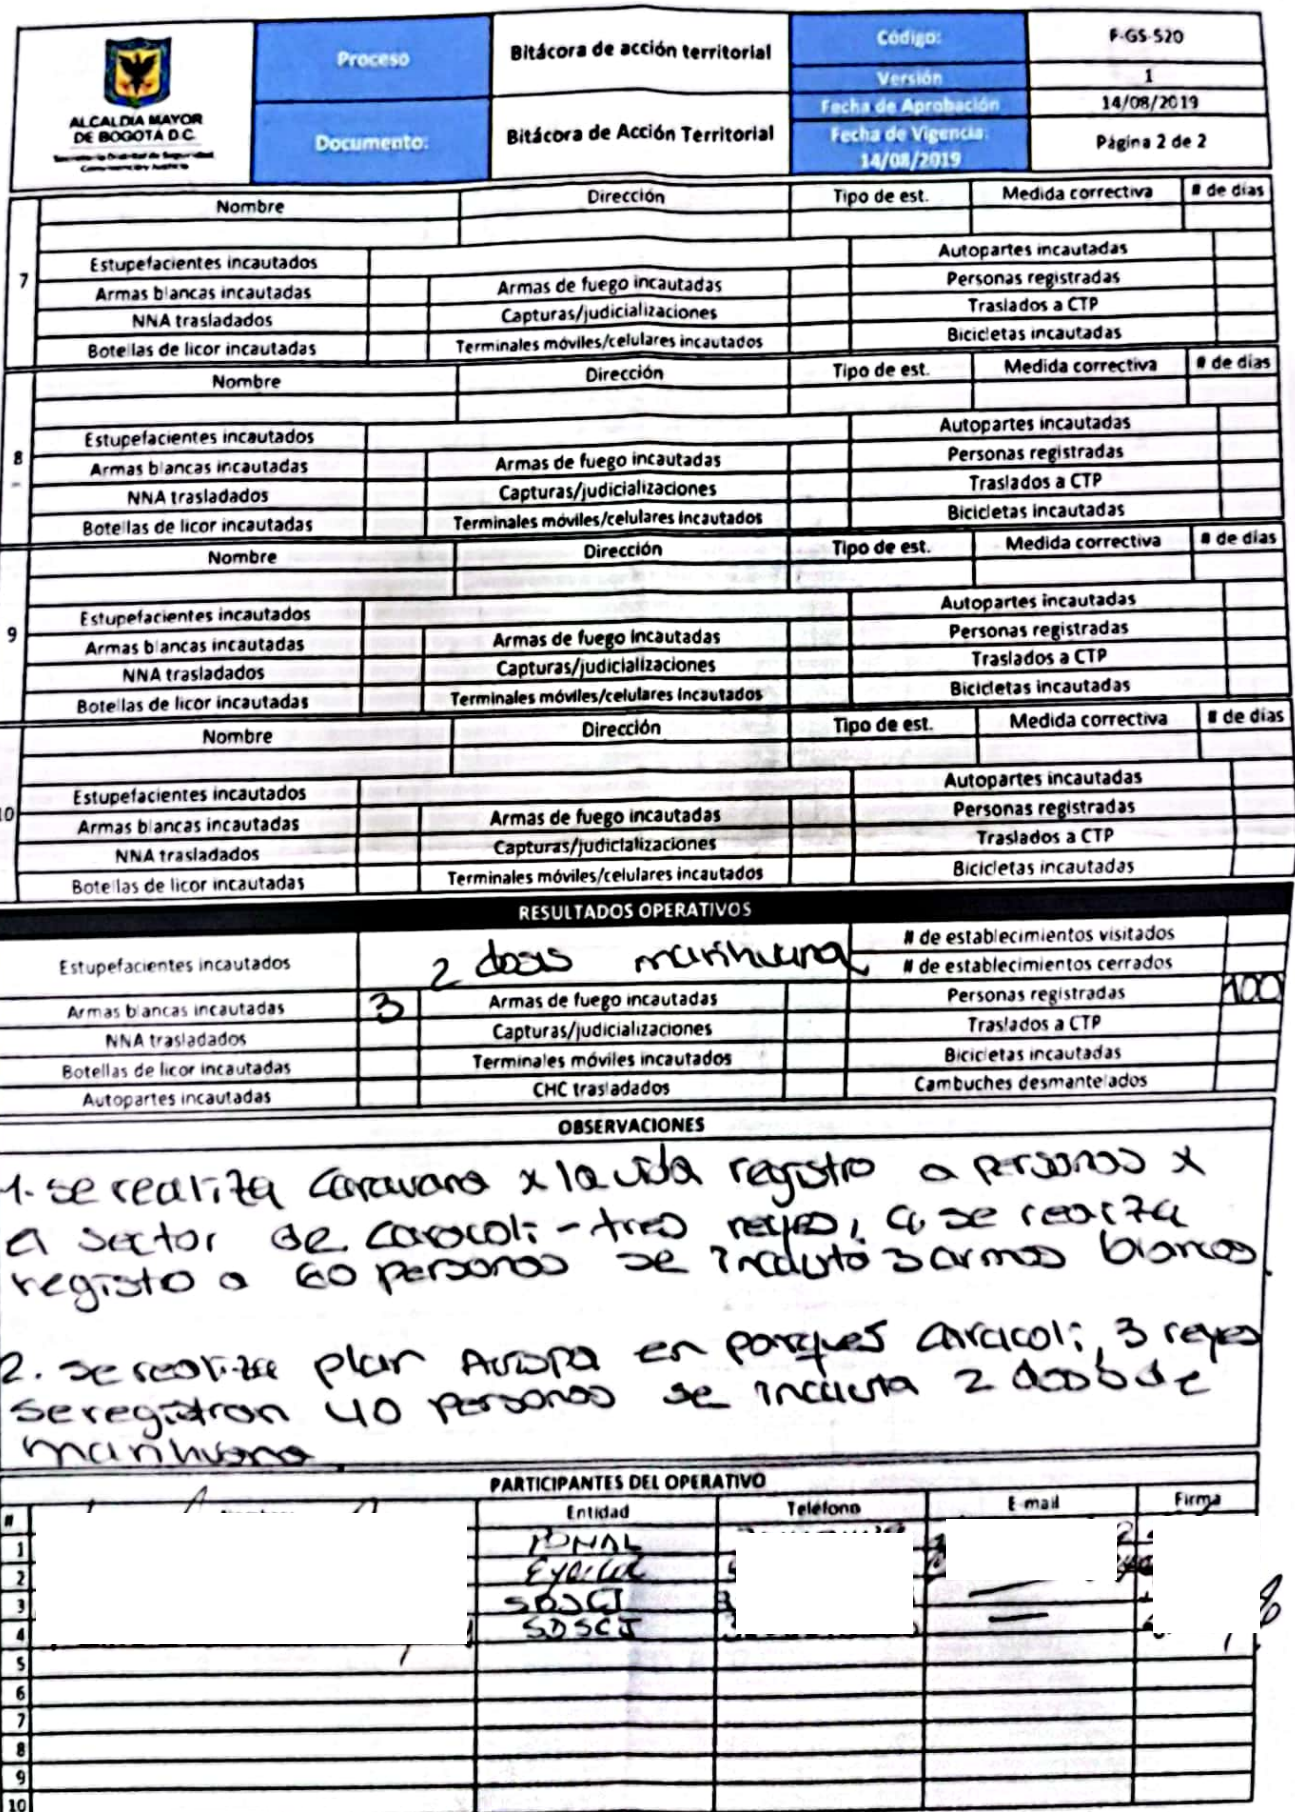 ALCALDIA MAYOR
DE BOGOTA D.C.
Secretaría Distrital de Seguridad,
Convivencia y Justicia
Proceso
Bitácora de acción territorial
Código:
F-GS-520
Versión
1
Documento:
Bitácora de Acción Territorial
Fecha de Aprobación
14/08/2019
Fecha de Vigencia:
14/08/2019
Página 2 de 2
7
Nombre Dirección Tipo de est. Medida correctiva # de días
Estupefacientes incautados Autopartes incautadas
Armas blancas incautadas Armas de fuego incautadas Personas registradas
NNA trasladados Capturas/judicializaciones Traslados a CTP
Botellas de licor incautadas Terminales móviles/celulares incautados Bicicletas incautadas
8
Nombre Dirección Tipo de est. Medida correctiva # de días
Estupefacientes incautados Autopartes incautadas
Armas blancas incautadas Armas de fuego incautadas Personas registradas
NNA trasladados Capturas/judicializaciones Traslados a CTP
Botellas de licor incautadas Terminales móviles/celulares incautados Bicicletas incautadas
9
Nombre Dirección Tipo de est. Medida correctiva # de días
Estupefacientes incautados Autopartes incautadas
Armas blancas incautadas Armas de fuego incautadas Personas registradas
NNA trasladados Capturas/judicializaciones Traslados a CTP
Botellas de licor incautadas Terminales móviles/celulares incautados Bicicletas incautadas
10
Nombre Dirección Tipo de est. Medida correctiva # de días
Estupefacientes incautados Autopartes incautadas
Armas blancas incautadas Armas de fuego incautadas Personas registradas
NNA trasladados Capturas/judicializaciones Traslados a CTP
Botellas de licor incautadas Terminales móviles/celulares incautados Bicicletas incautadas
RESULTADOS OPERATIVOS
Estupefacientes incautados 2 dosis marihuana # de establecimientos visitados
# de establecimientos cerrados
Armas blancas incautadas 3 Armas de fuego incautadas Personas registradas 100
NNA trasladados Capturas/judicializaciones Traslados a CTP
Botellas de licor incautadas Terminales móviles incautados Bicicletas incautadas
Autopartes incautadas CHC trasladados Cambuches desmantelados
OBSERVACIONES
1. se realiza caravana x la vida registro a personas x
el sector de caracoli - tres reyes, se realiza
registo a 60 personas se incauto 3 armas blancas.
2. se realiza plan Avispa en parques caracoli, 3 reyes
se registran 40 personas se incauta 2 dosis de
marihuana.
PARTICIPANTES DEL OPERATIVO
# Entidad Teléfono E-mail Firma
1 PONAL
2
3 SDSCJ
4 SDSCJ
5
6
7
8
9
10